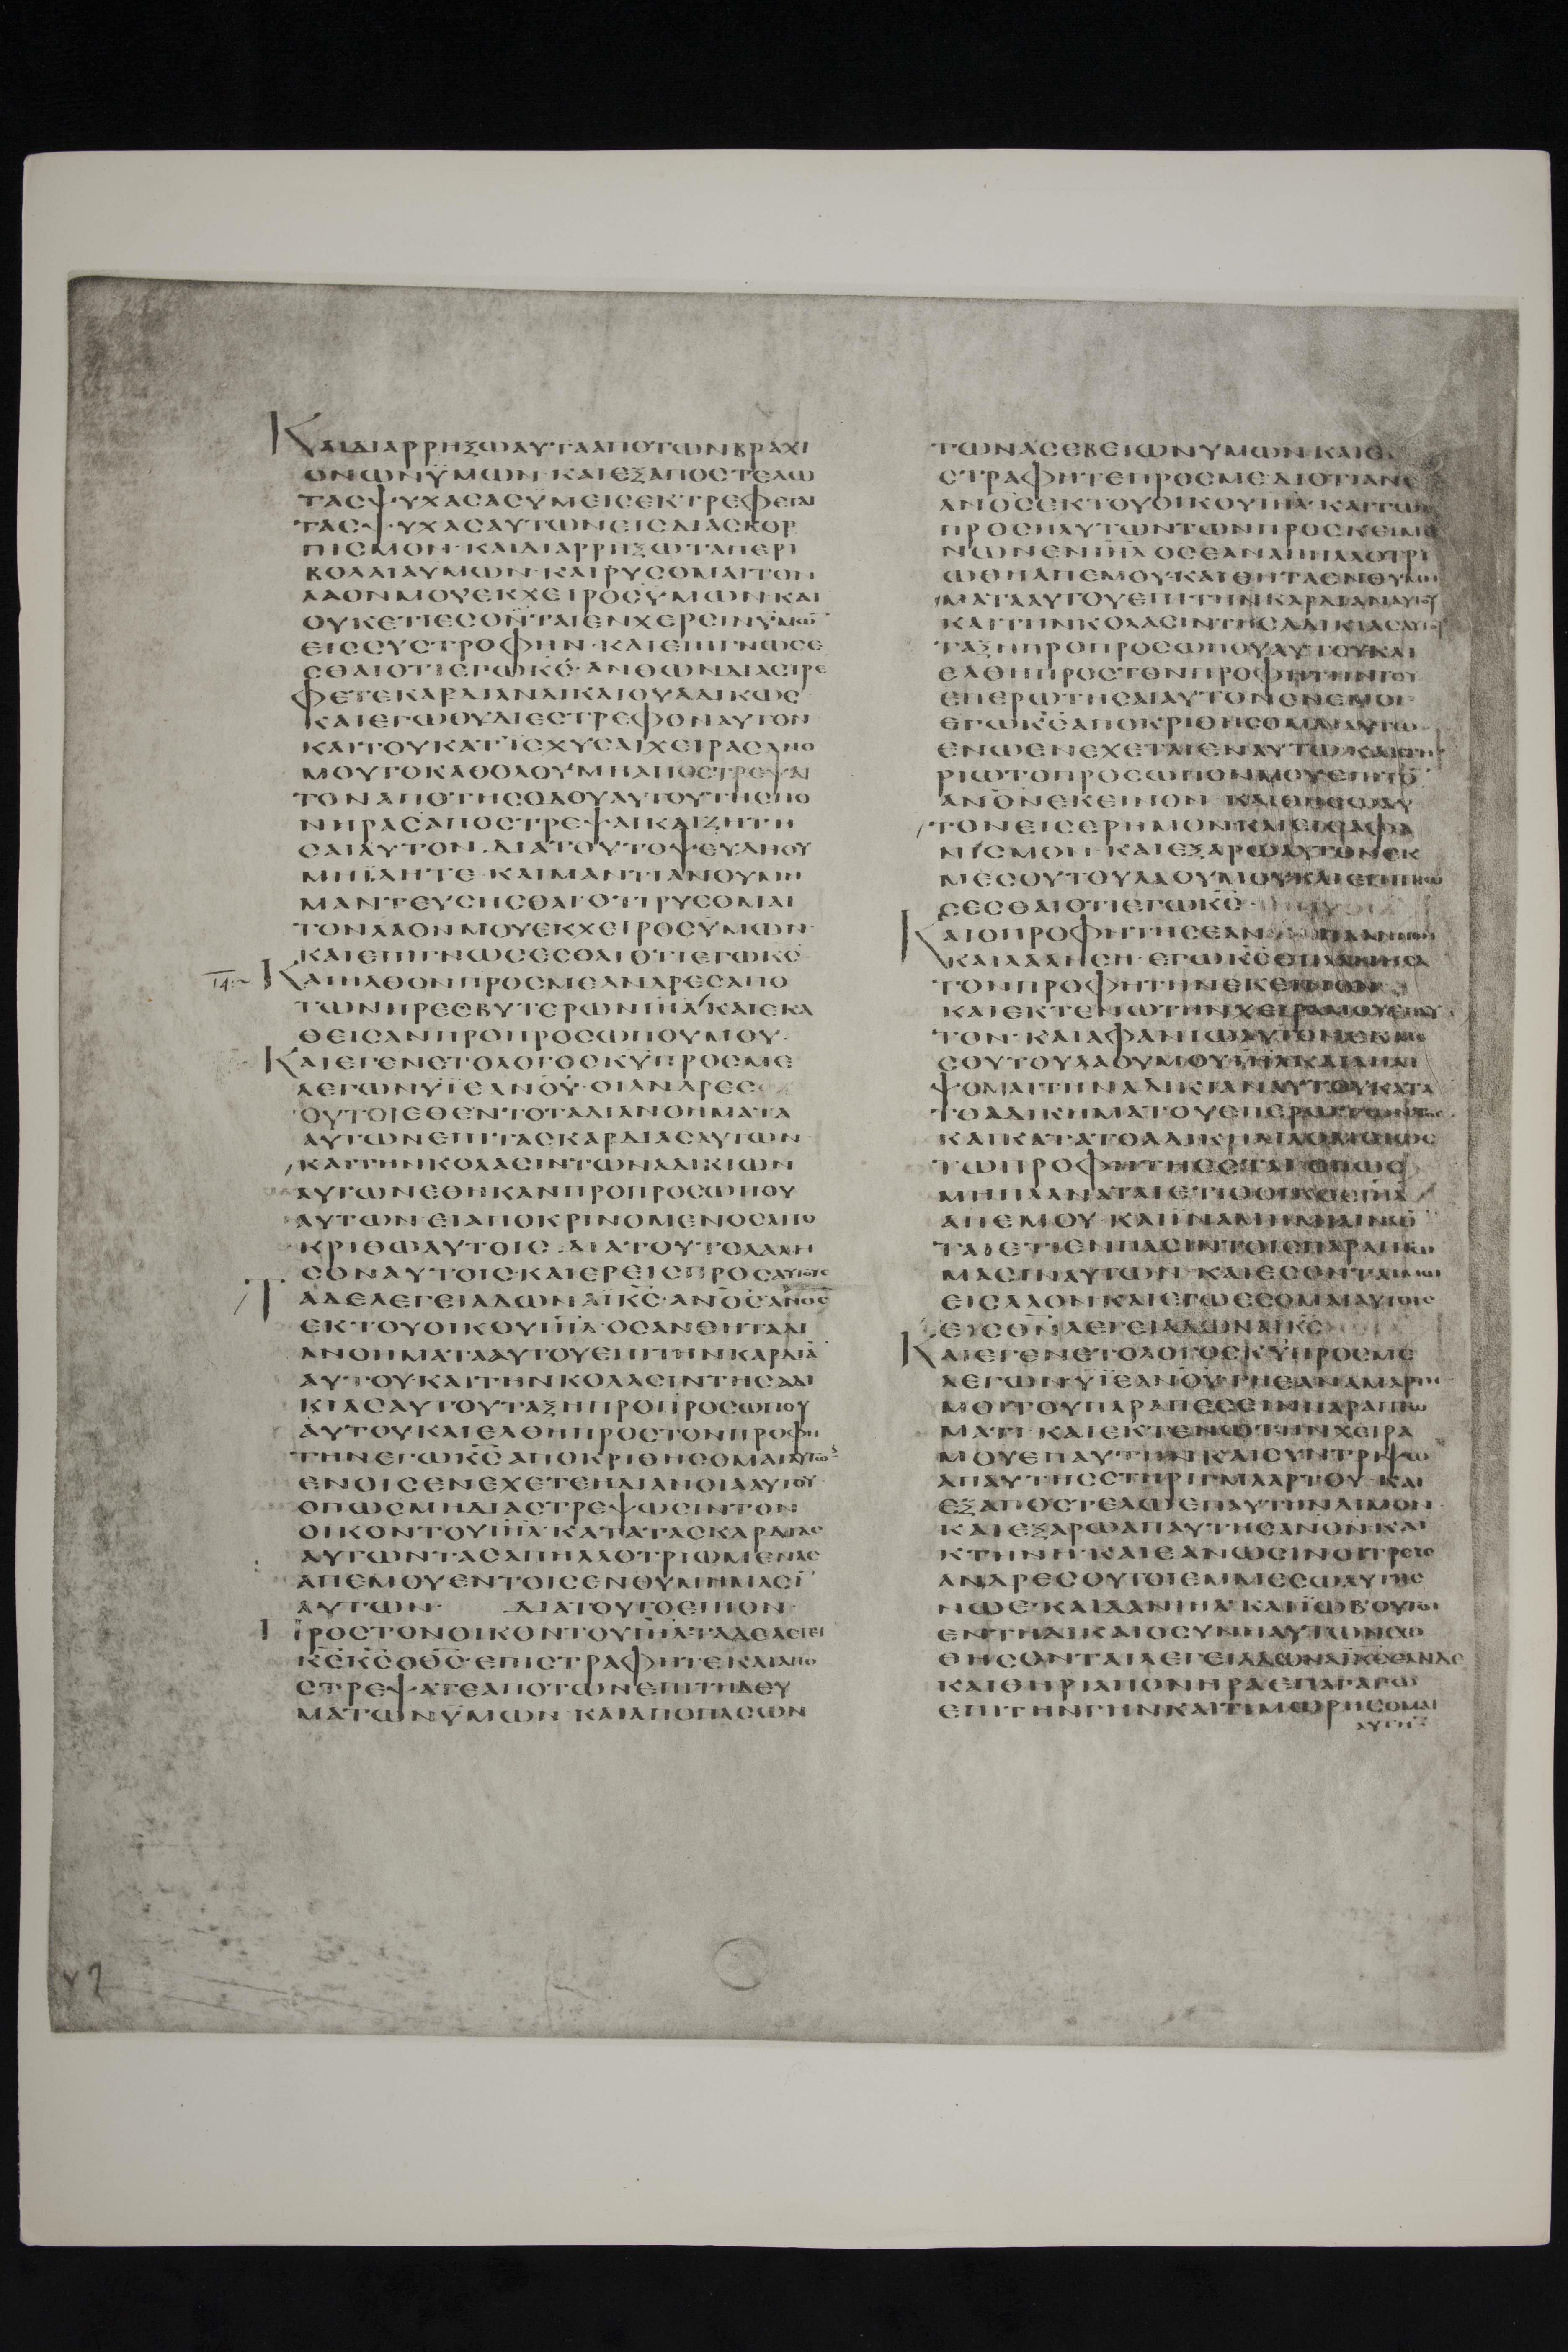 ΚΑΙΔΙΑΡΡΗΞΩΑΥΤΑΑΠΟΤΩΝΒΡΑΧΙ
ΟΝΩΝΫΜΩΝ·ΚΑΙΕΞΑΠΟΣΤΕΛΩ
ΤΑΣΨΥΧΑΣΑΣΫΜΕΙΣΕΚΤΡΕΦΕΤΑΙ
ΤΑΣΨΥΧΑΣΑΥΤΩΝΕΙΣΔΙΑΣΚΟΡ
ΠΙΣΜΟΝ·ΚΑΙΔΙΑΡΡΗΞΩΤΑΠΕΡΙ
ΒΟΛΑΙΑΥΜΩΝ·ΚΑΙΡΥΣΟΜΑΙΤΟΝ
ΛΑΟΝΜΟΥΕΚΧΕΙΡΟΣΫΜΩΝΚΑΙ
ΟΥΚΕΤΙΕΣΟΝΤΑΙΕΝΧΕΡΣΙΝΫΜΩ̄
ΕΙΣΣΥΣΤΡΟΦΗΝ·ΚΑΙΕΠΙΓΝΩΣΕ
ΣΘΑΙΟΤΙΕΓΩΚ̅Σ̅·ΑΝΘΩΝΔΙΑΣΤΡΕ
ΦΕΤΕΚΑΡΔΙΑΝΔΙΚΑΙΟΥΑΔΙΚΩΣ
ΚΑΙΕΓΩΟΥΔΙΕΣΤΡΕΦΟΝΑΥΤΟΝ
ΚΑΙΤΟΥΚΑΤΪΣΧΥΣΑΙΧΕΙΡΑΣΑΝΟ
ΜΟΥΤΟΚΑΘΟΛΟΥΜΗΑΠΟΣΤΡΕΨΑΙ
ΤΟΝΑΠΟΤΗΣΟΔΟΥΑΥΤΟΥΤΗΣΠΟ
ΝΗΡΑΣΑΠΟΣΤΡΕΨΑΙΚΑΙΖΗΤΗ
ΣΑΙΑΥΤΟΝ·ΔΙΑΤΟΥΤΟΨΕΥΔΗΟΥ
ΜΗΪΔΗΤΕ·ΚΑΙΜΑΝΤΙΑΝΟΥΜΗ
ΜΑΝΤΕΥΣΗΣΘΑΙΟΤΙΡΥΣΟΜΑΙ
ΤΟΝΛΑΟΝΜΟΥΕΚΧΕΙΡΟΣΫΜΩΝ·
ΚΑΙΕΠΙΓΝΩΣΕΣΘΑΙΟΤΙΕΓΩΚ̅Σ̅
ΚΑΙΗΛΘΟΝΠΡΟΣΜΕΑΝΔΡΕΣΑΠΟ
ΤΩΝΠΡΕΣΒΥΤΕΡΩΝΙ̅Η̅Λ̅ΚΑΙΕΚΑ
ΘΕΙΣΑΝΠΡΟΠΡΟΣΩΠΟΥΜΟΥ·
ΚΑΙΕΓΕΝΕΤΟΛΟΓΟΣΚ̅Υ̅ΠΡΟΣΜΕ
ΛΕΓΩΝΥΪΕΑΝΟΥ·ΟΙΑΝΔΡΕΣ
ΟΥΤΟΙΕΘΕΝΤΟΤΑΔΙΑΝΟΗΜΑΤΑ
ΑΥΤΩΝΕΠΙΤΑΣΚΑΡΔΙΑΣΑΥΤΩΝ·
ΚΑΙΤΗΝΚΟΛΑΣΙΝΤΩΝΑΔΙΚΙΩΝ
ΑΥΤΩΝΕΘΗΚΑΝΠΡΟΠΡΟΣΩΠΟΥ
ΑΥΤΩΝ·ΕΙΑΠΟΚΡΙΝΟΜΕΝΟΣΑΠΟ
ΚΡΙΘΩΑΥΤΟΙΣ·ΔΙΑΤΟΥΤΟΛΑΛΗ
ΣΟΝΑΥΤΟΙΣ·ΚΑΙΕΡΕΙΣΠΡΟΣΑΥΤΟΥΣ
ΤΑΔΕΛΕΓΕΙΑΔΩΝΑΪΚ̅Σ̅·ΑΝΟΣΑΝΟΣ
ΕΚΤΟΥΟΙΚΟΥΙ̅Η̅Λ̅·ΟΣΑΝΘΗΤΑΔΙ
ΑΝΟΗΜΑΤΑΑΥΤΟΥΕΠΙΤΗΝΚΑΡΔΙᾹ
ΑΥΤΟΥ·ΚΑΙΤΗΝΚΟΛΑΣΙΝΤΗΣΑΔΙ
ΚΙΑΣΑΥΤΟΥΤΑΞΗΠΡΟΠΡΟΣΩΠΟΥ
ΑΥΤΟΥΚΑΙΕΛΘΗΠΡΟΣΤΟΝΠΡΟΦΗ
ΤΗΝΕΓΩΚ̅Σ̅ΑΠΟΚΡΙΘΗΣΟΜΑΙΑΥΤΩ
ΕΝΟΙΣΕΝΕΧΕΤΕΗΔΙΑΝΟΙΑΑΥΤΟΥ·
ΟΠΩΣΜΗΔΙΑΣΤΡΕΨΩΣΙΝΤΟΝ
ΟΙΚΟΝΤΟΥΙ̅Η̅Λ̅ΚΑΤΑΤΑΣΚΑΡΔΙΑΣ
ΑΥΤΩΝΤΑΣΑΠΗΛΛΟΤΡΙΩΜΕΝΑΣ
ΑΠΕΜΟΥΕΝΤΟΙΣΕΝΘΥΜΗΜΑΣΙ
ΑΥΤΩΝ· ΔΙΑΤΟΥΤΟΕΙΠΟΝ
ΠΡΟΣΤΟΝΟΙΚΟΝΤΟΥΙ̅Η̅Λ̅·ΤΑΔΕΛΕΓΕΙ
Κ̅Σ̅Κ̅Σ̅ΟΘ̅Σ̅·ΕΠΙΣΤΡΑΦΗΤΕΚΑΙΑΠΟ
ΣΤΡΕΨΑΤΕΑΠΟΤΩΝΕΠΙΤΗΔΕΥ
ΜΑΤΩΝΫΜΩΝ·ΚΑΙΑΠΟΠΑΣΩΝ
ΤΩΝΑΣΕΒΕΙΩΝΥΜΩΝ·ΚΑΙΕ
ΣΤΡΑΦΗΤΕΠΡΟΣΜΕΔΙΟΤΙΑΝ
ΑΝΟΣΕΚΤΟΥΟΙΚΟΥΙ̅Η̅Λ̅·ΚΑΙΤΩΝ
ΠΡΟΣΗΛΥΤΩΝΤΩΝΠΡΟΣΚΕΙΜΕ
ΝΩΝΕΝΙ̅Η̅Λ̅ΟΣΕΑΝΑΠΗΛΛΟΤΡΙ
ΩΘΗΑΠΕΜΟΥ·ΚΑΙΘΗΤΑΕΝΘΥΜΗ
ΜΑΤΑΑΥΤΟΥΕΠΙΤΗΝΚΑΡΔΙΑΝΑΥΤΟΥ
ΚΑΙΤΗΝΚΟΛΑΣΙΝΤΗΣΑΔΙΚΙΑΣΑΥΤΟΥ
ΤΑΞΗΠΡΟΠΡΟΣΩΠΟΥΑΥΤΟΥΚΑΙ
ΕΛΘΗΠΡΟΣΤΟΝΠΡΟΦΗΤΗΝΤΟΥ
ΕΠΕΡΩΤΗΣΑΙΑΥΤΟΝΕΝΕΜΟΙ
ΕΓΩΚ̅Σ̅ΑΠΟΚΡΙΘΗΣΟΜΑΙΑΥΤΩ
ΕΝΩΕΝΕΧΕΤΑΙΕΝΑΥΤΩ·ΚΑΙΣΤΗ
ΡΙΩΤΟΠΡΟΣΩΠΟΝΜΟΥΕΠΙΤΟ̄
ΑΝΟΝΕΚΕΙΝΟΝ·ΚΑΙΘΗΣΩΑΥ
ΤΟΝΕΙΣΕΡΗΜΟΝΚΑΙΕΙΣΑΦΑ
ΝΙΣΜΟΝ·ΚΑΙΕΞΑΡΩΑΥΤΟΝΕΚ
ΜΕΣΟΥΤΟΥΛΑΟΥΜΟΥΚΑΙΕΠΙΓΝΩ
ΣΕΣΘΑΙΟΤΙΕΓΩΚ̅Σ̅·
ΚΑΙΟΠΡΟΦΗΤΗΣΕΑΝ
ΚΑΙΛΑΛΗΣΗ·ΕΓΩΚ̅Σ̅ΕΠΛΑΝΗΣΑ
ΤΟΝΠΡΟΦΗΤΗΝΕΚΕΙΝΟΝ
ΚΑΙΕΚΤΕΝΩΤΗΝΧΕΙΡΑΜΟΥΕΠΑΥ
ΤΟΝ·ΚΑΙΑΦΑΝΙΩΑΥΤΟΝΕΚΜΕ
ΣΟΥΤΟΥΛΑΟΥΜΟΥΙ̅Η̅Λ̅ΚΑΙΛΗΜ
ΨΟΜΑΙΤΗΝΑΔΙΚΙΑΝΑΥΤΟΥΚΑΤΑ
ΤΟΑΔΙΚΗΜΑΤΟΥΕΠΕΡΩΤΩΝΤΟΣ
ΚΑΙΚΑΤΑΤΟΑΔΙΚΗΜΑΟΜΟΙΩΣ
ΤΩΠΡΟΦΗΤΗΕΣΤΑΙΟΠΩΣ
ΜΗΠΛΑΝΑΤΑΙΕΤΙΟΟΙΚΟΣΙ̅Η̅Λ̅
ΑΠΕΜΟΥ·ΚΑΙΪΝΑΜΗΜΙΑΙΝΩ̄
ΤΑΙΕΤΙΕΝΠΑΣΙΝΤΟΙΣΠΑΡΑΠΤΩ
ΜΑΣΙΝΑΥΤΩΝ·ΚΑΙΕΣΟΝΤΑΙΜΟΙ
ΕΙΣΛΑΟΝΚΑΙΕΓΩΕΣΟΜΑΙΑΥΤΟΙΣ
ΕΙΣΘΝ̅ΛΕΓΕΙΑΔΩΝΑΪΚ̅Σ̅
ΚΑΙΕΓΕΝΕΤΟΛΟΓΟΣΚ̅Υ̅ΠΡΟΣΜΕ
ΛΕΓΩΝΥΪΕΑΝΟΥ·ΓΗΕΑΝΑΜΑΡΤΗ
ΜΟΙΤΟΥΠΑΡΑΠΕΣΕΙΝΠΑΡΑΠΤΩ
ΜΑΤΙ·ΚΑΙΕΚΤΕΝΩΤΗΝΧΕΙΡΑ
ΜΟΥΕΠΑΥΤΗΝΚΑΙΣΥΝΤΡΙΨΩ
ΑΠΑΥΤΗΣΣΤΗΡΙΓΜΑΑΡΤΟΥ·ΚΑΙ
ΕΞΑΠΟΣΤΕΛΩΕΠΑΥΤΗΝΛΙΜΟΝ·
ΚΑΙΕΞΑΡΩΑΠΑΥΤΗΣΑΝΟΝΚΑΙ
ΚΤΗΝΗ·ΚΑΙΕΑΝΩΣΙΝΟΙΤΡΕΙΣ
ΑΝΔΡΕΣΟΥΤΟΙΕΜΜΕΣΩΑΥΤΗΣ
ΝΩΕ·ΚΑΙΔΑΝΙΗΛ·ΚΑΙΪΩΒ·ΟΥΤΟΙ
ΕΝΤΗΔΙΚΑΙΟΣΥΝΗΑΥΤΩΝΣΩ
ΘΗΣΟΝΤΑΙΛΕΓΕΙΑΔΩΝΑΪΚ̅Σ̅·ΕΑΝΔΕ
ΚΑΙΘΗΡΙΑΠΟΝΗΡΑΕΠΑΓΑΓΩ
ΕΠΙΤΗΝΓΗΝΚΑΙΤΙΜΩΡΗΣΟΜΑΙ
ΑΥΤΗΝ